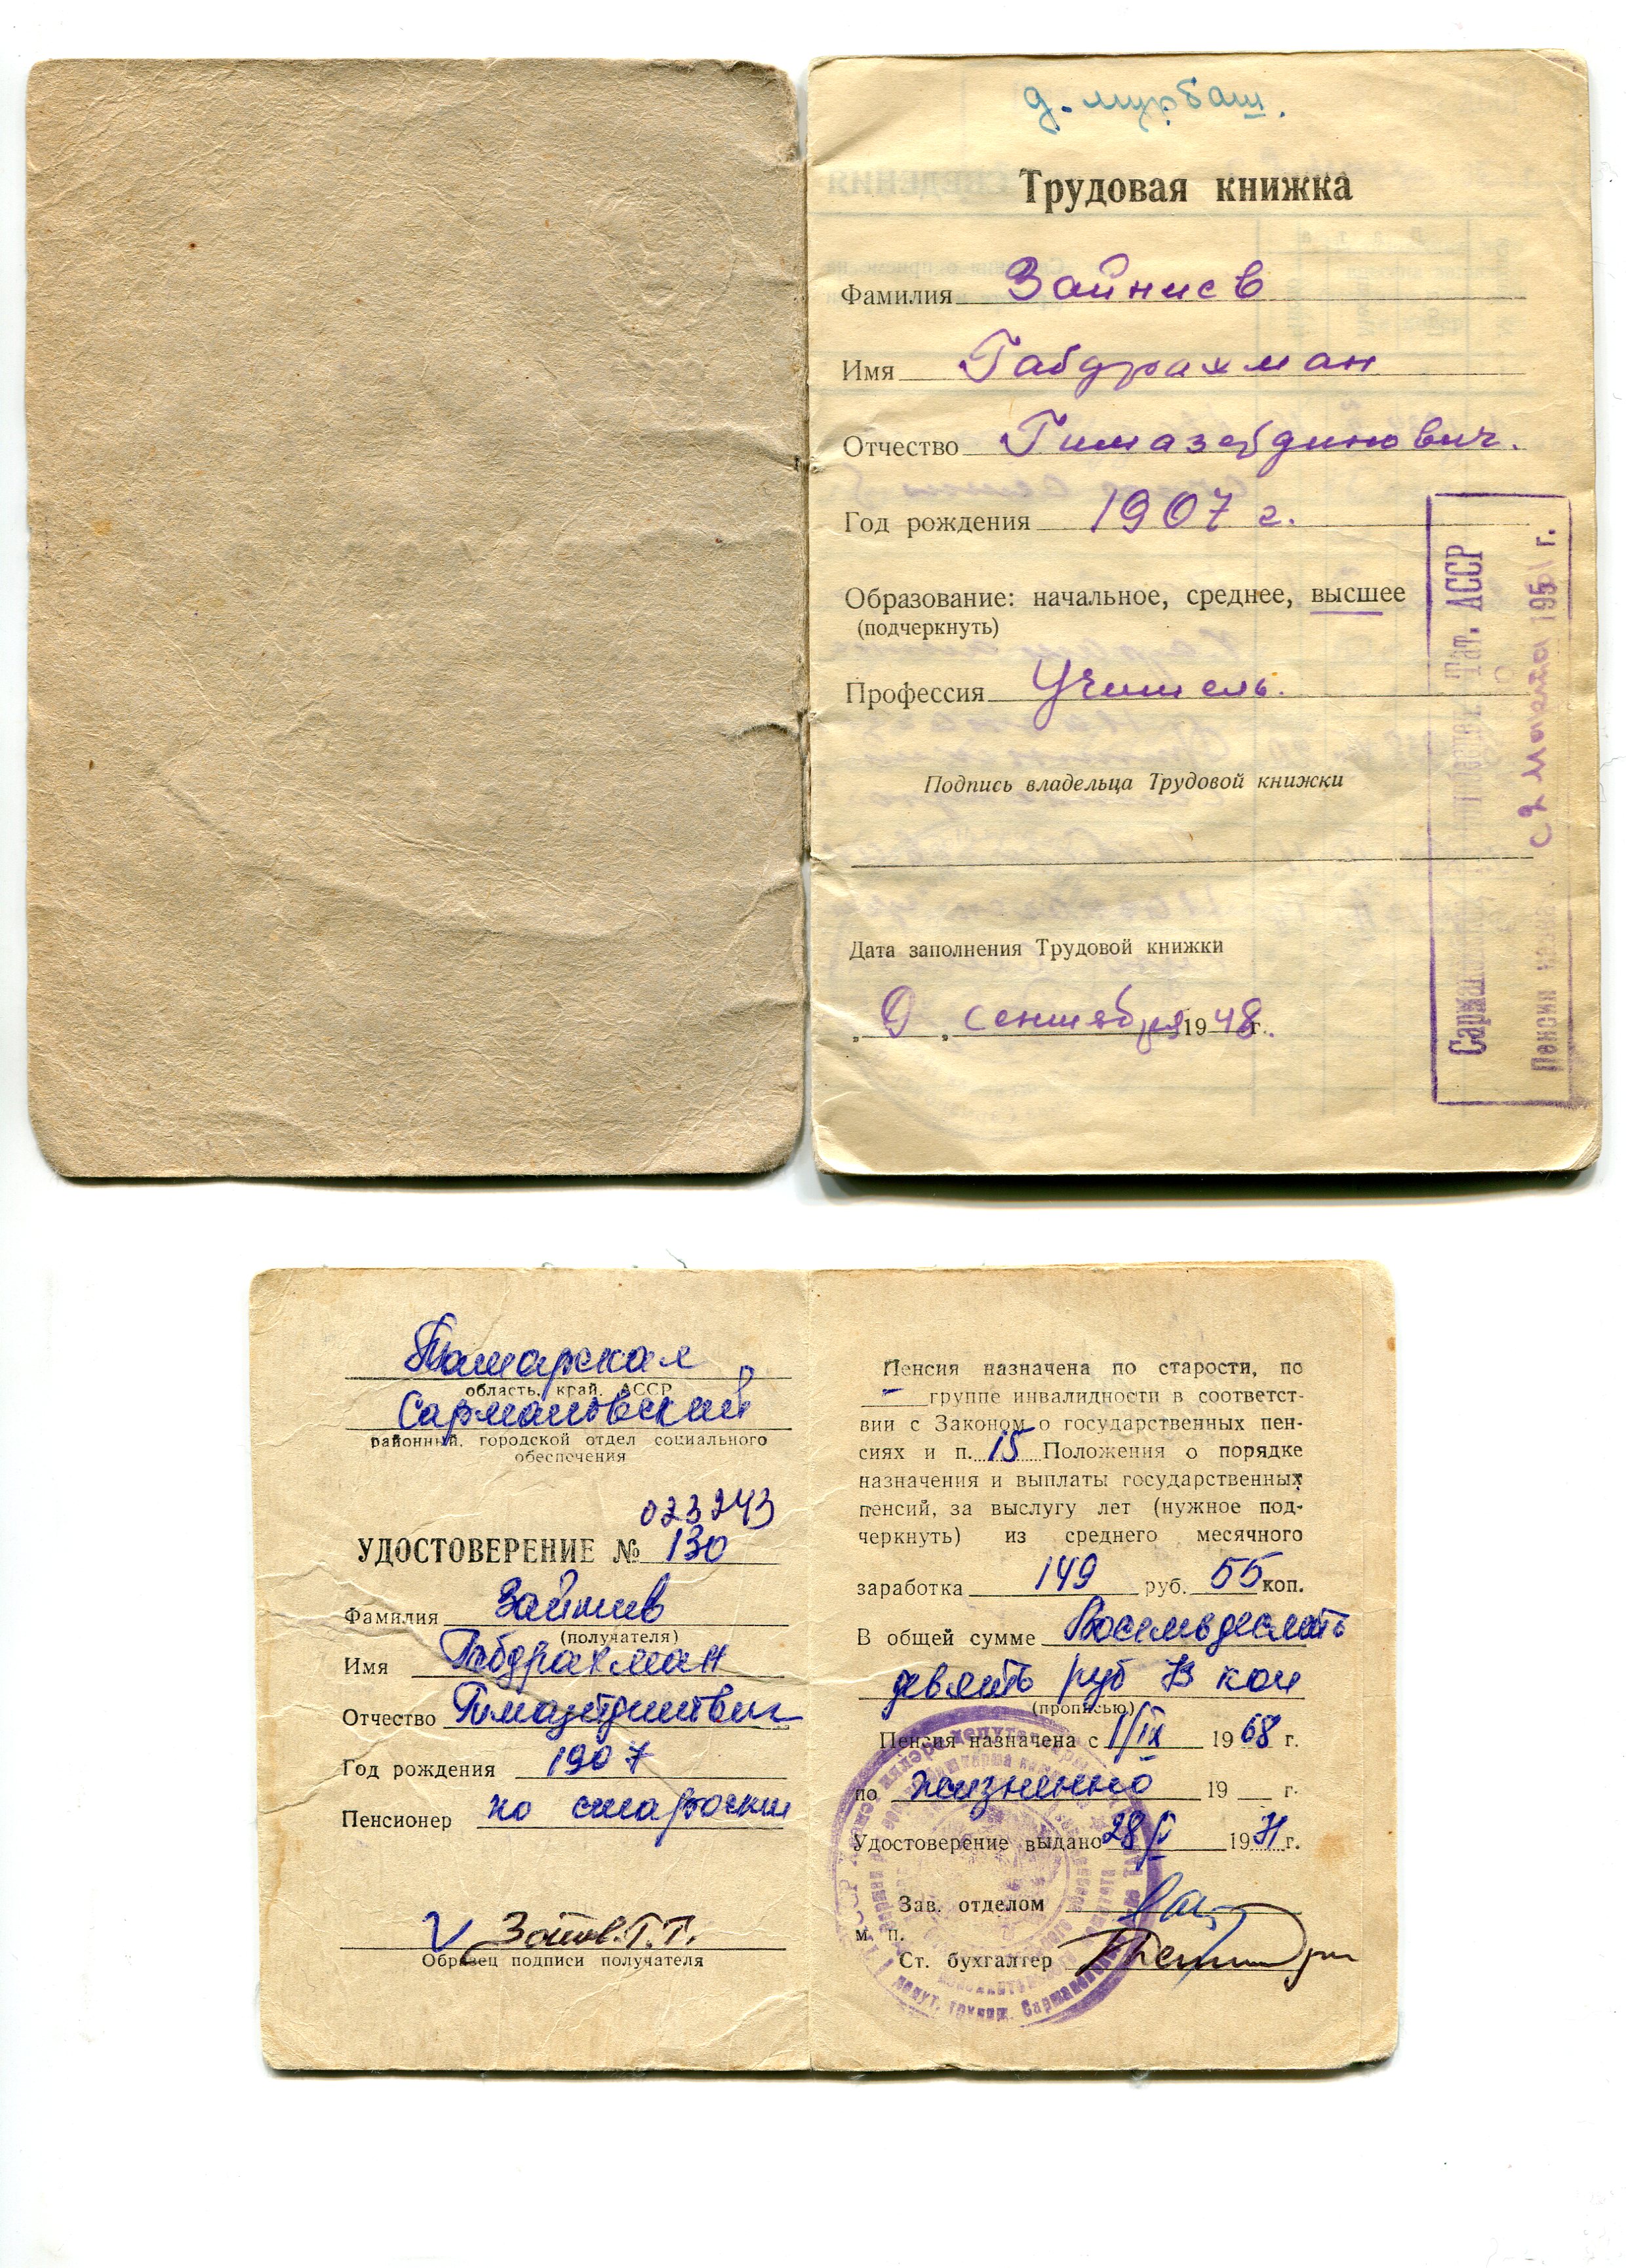 д. мурбаш.
Трудовая книжка
Фамилия Зайниев
Имя Габдрахман
Отчество Гимазетдинович.
Год рождения 1907 г.
Образование: начальное, среднее, высшее
(подчеркнуть)
Профессия Учитель.
Подпись владельца Трудовой книжки
Дата заполнения Трудовой книжки
„9„ сентября 1948г.
Тат. АССР
Пенсия с 2 1951 г.
Татарская
область, край, АССР
Сармановский
районный, городской отдел социального
обеспечения
023243
УДОСТОВЕРЕНИЕ № 130
Фамилия Зайниев
(получателя)
Имя Габдрахман
Отчество
Год рождения 1907
Пенсионер по старости
V Г.Г.
Образец подписи получателя
Пенсия назначена по старости, по
– группе инвалидности в соответст-
вии с Законом о государственных пен-
сиях и п. 15 Положения о порядке
назначения и выплаты государственных
пенсий, за выслугу лет (нужное под-
черкнуть) из среднего месячного
заработка 149 руб. 55 коп.
В общей сумме Восемьдесять
девять руб 73 коп
(прописью)
Пенсия назначена с 1/IX 1968 г.
по жизненно 19 г.
Удостоверение выдано 28/V 1971г.
Зав. отделом
м. п.
Ст. бухгалтер